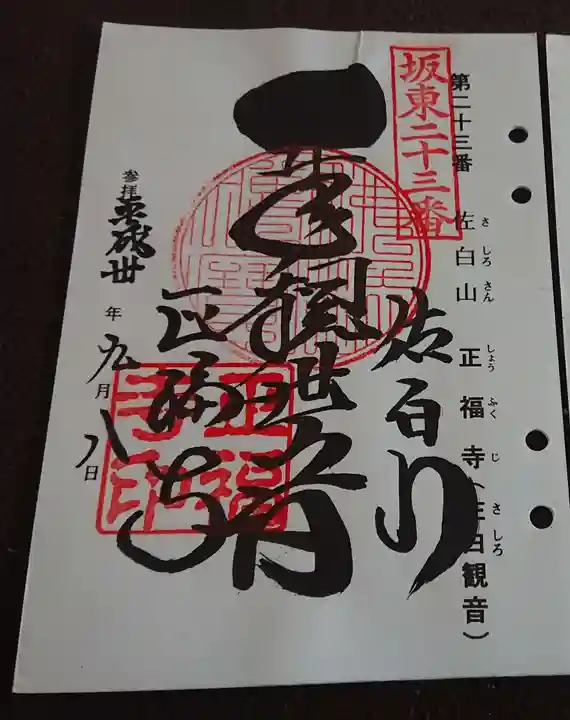 坂東二十三番
第二十三番 佐白山 正福寺(佐白観音)
さしろさん しょうふくじ さしろ
佐白山
千手観世音
正福寺
正福寺印
参拝 平成丗年九月八日